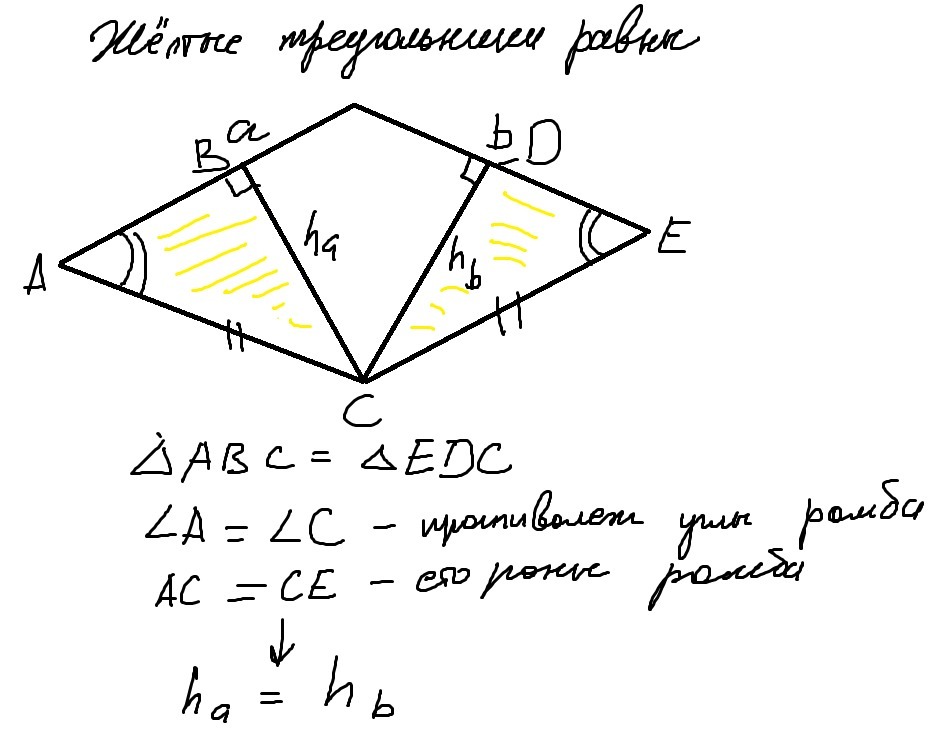 Жёлтые треугольники равны
a
b
B
D
A
hₐ
h_b
E
C
△ABC = △EDC
∠A = ∠C – противолеж углы ромба
AC = CE – стороны ромба
↓
hₐ = h_b